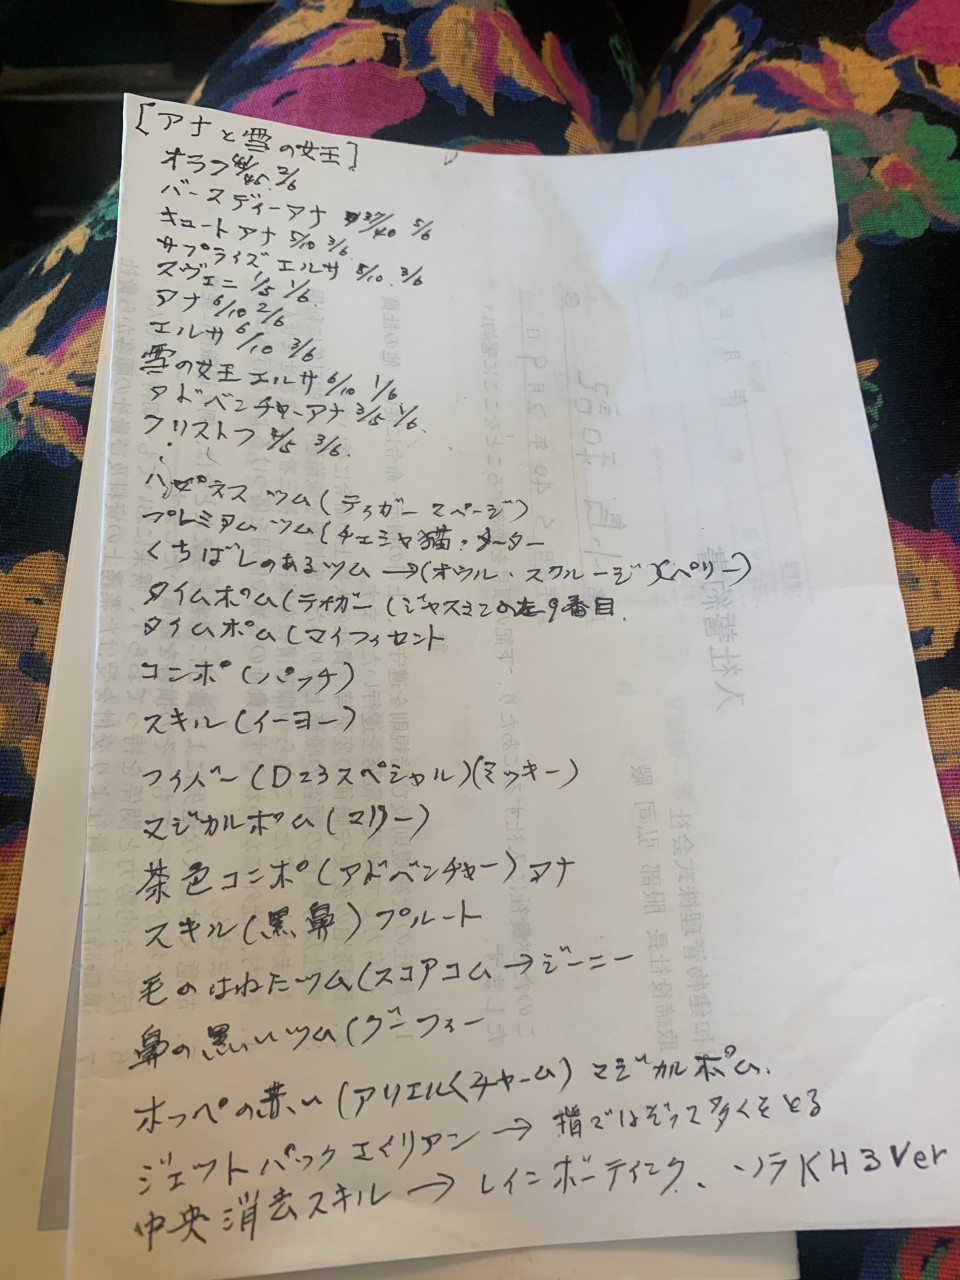 [アナと雪の女王]
オラフ 45. 2/6
バースディーアナ 37/40 5/6
キュートアナ 5/10 3/6
サプライズエルサ 5/10. 3/6
スヴェン 1/5 1/6.
アナ 6/10 2/6
エルサ 6/10 3/6
雪の女王エルサ 6/10 1/6
アドベンチャーアナ 3/5 1/6.
クリストフ 2/5 3/6.
ハピネスツム(ティガー 2ページ)
プレミアムツム(チェシャ猫・
くちばしのあるツム→(オウル・スクルージ)(ペリー)
タイムボム(ティガー(ジャスミンの左9番目.
タイムボム(マイフィセント
コンボ(パッチ)
スキル(イーヨー)
フィバー(D23スペシャル)(ミッキー)
マジカルボム(マリー)
茶色コンボ(アドベンチャー)アナ
スキル(黒鼻)プルート
毛のはねたツム(スコアコム→ジーニー
鼻の黒いツム(グーフィー
ホッペの赤い(アリエルくチャーム)マジカルボム.
ジェットパックエイリアン→指でなぞって多くをとる
中央消去スキル→レインボーティンク、ソラKH3Ver